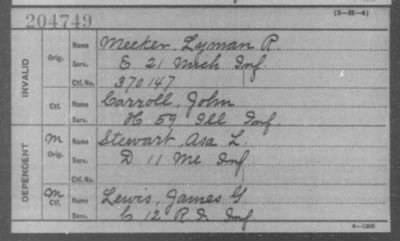 (3-M-4)
204749
INVALID
Orig.
Name Meeker, Lyman P.
Serv. E 21 Mich Inf.
Ctf. No. 370147
Ctf.
Name Carroll, John
Serv. H 59 Ill Inf.
DEPENDENT
M
Orig.
Name Stewart Asa L.
Serv. D 11 Me Inf
Ctf. No.
M
Ctf.
Name Lewis, James G
Serv. C 12 R.I. Inf